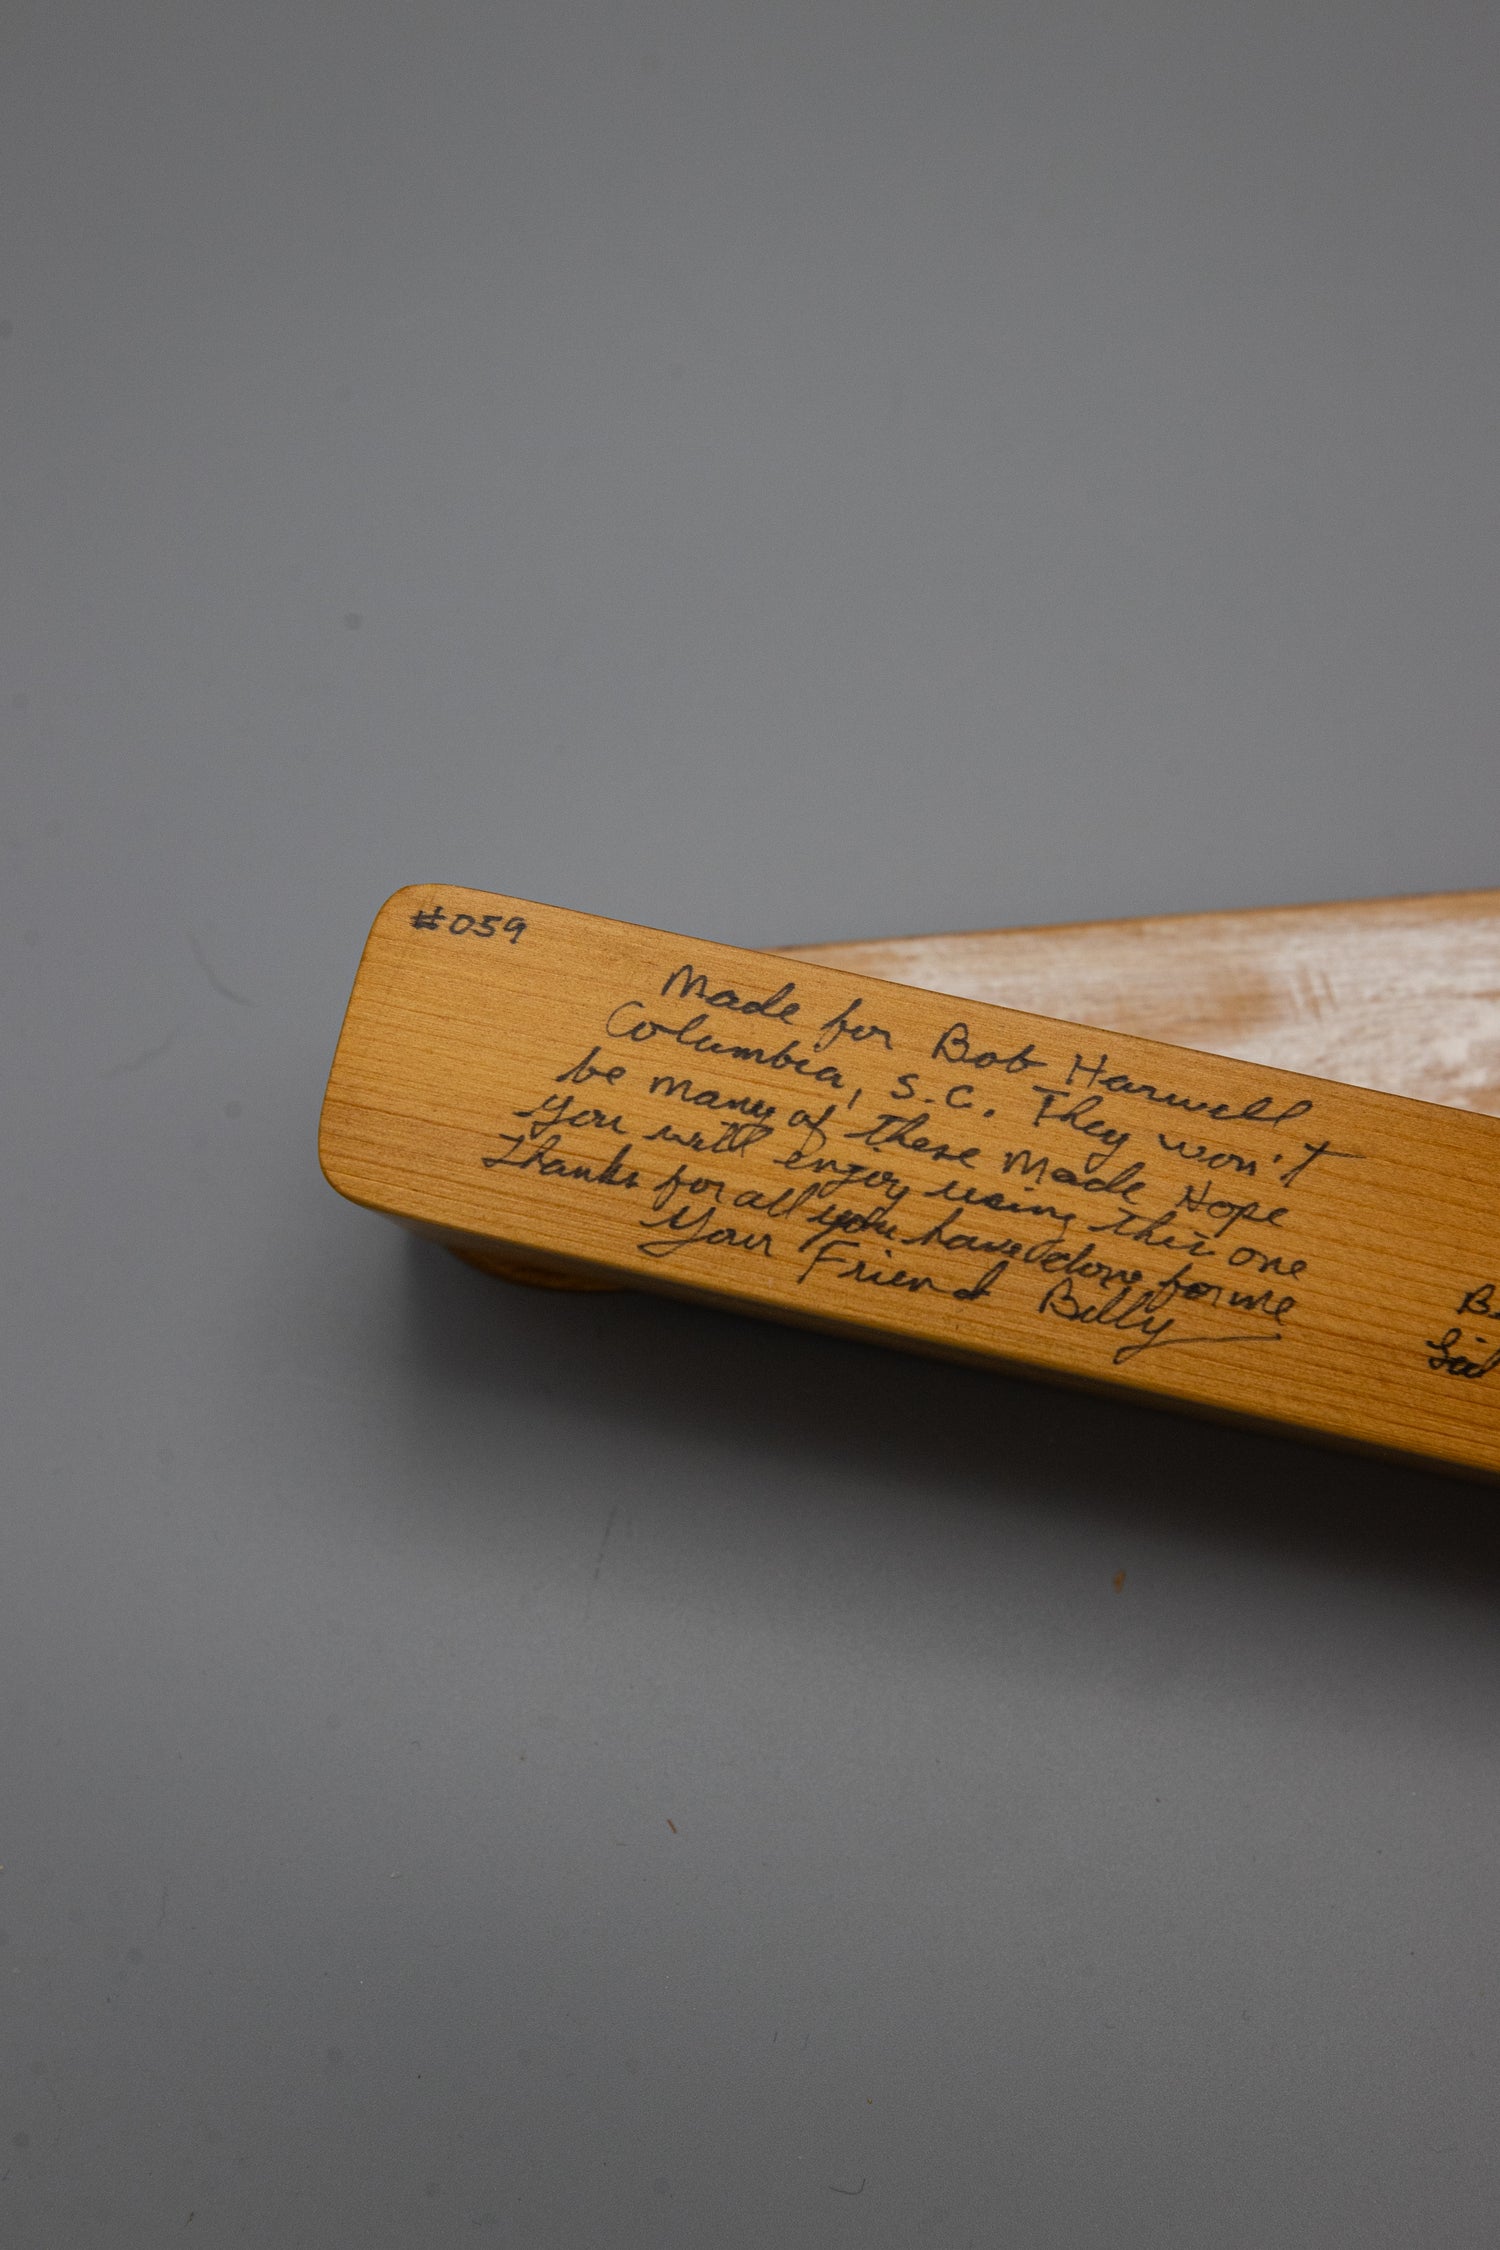 #059
Made for Bob Harwell
Columbia, S.C. They won't
be many of these Made Hope
you will enjoy using this one
Thanks for all you have done for me
Your Friend Billy